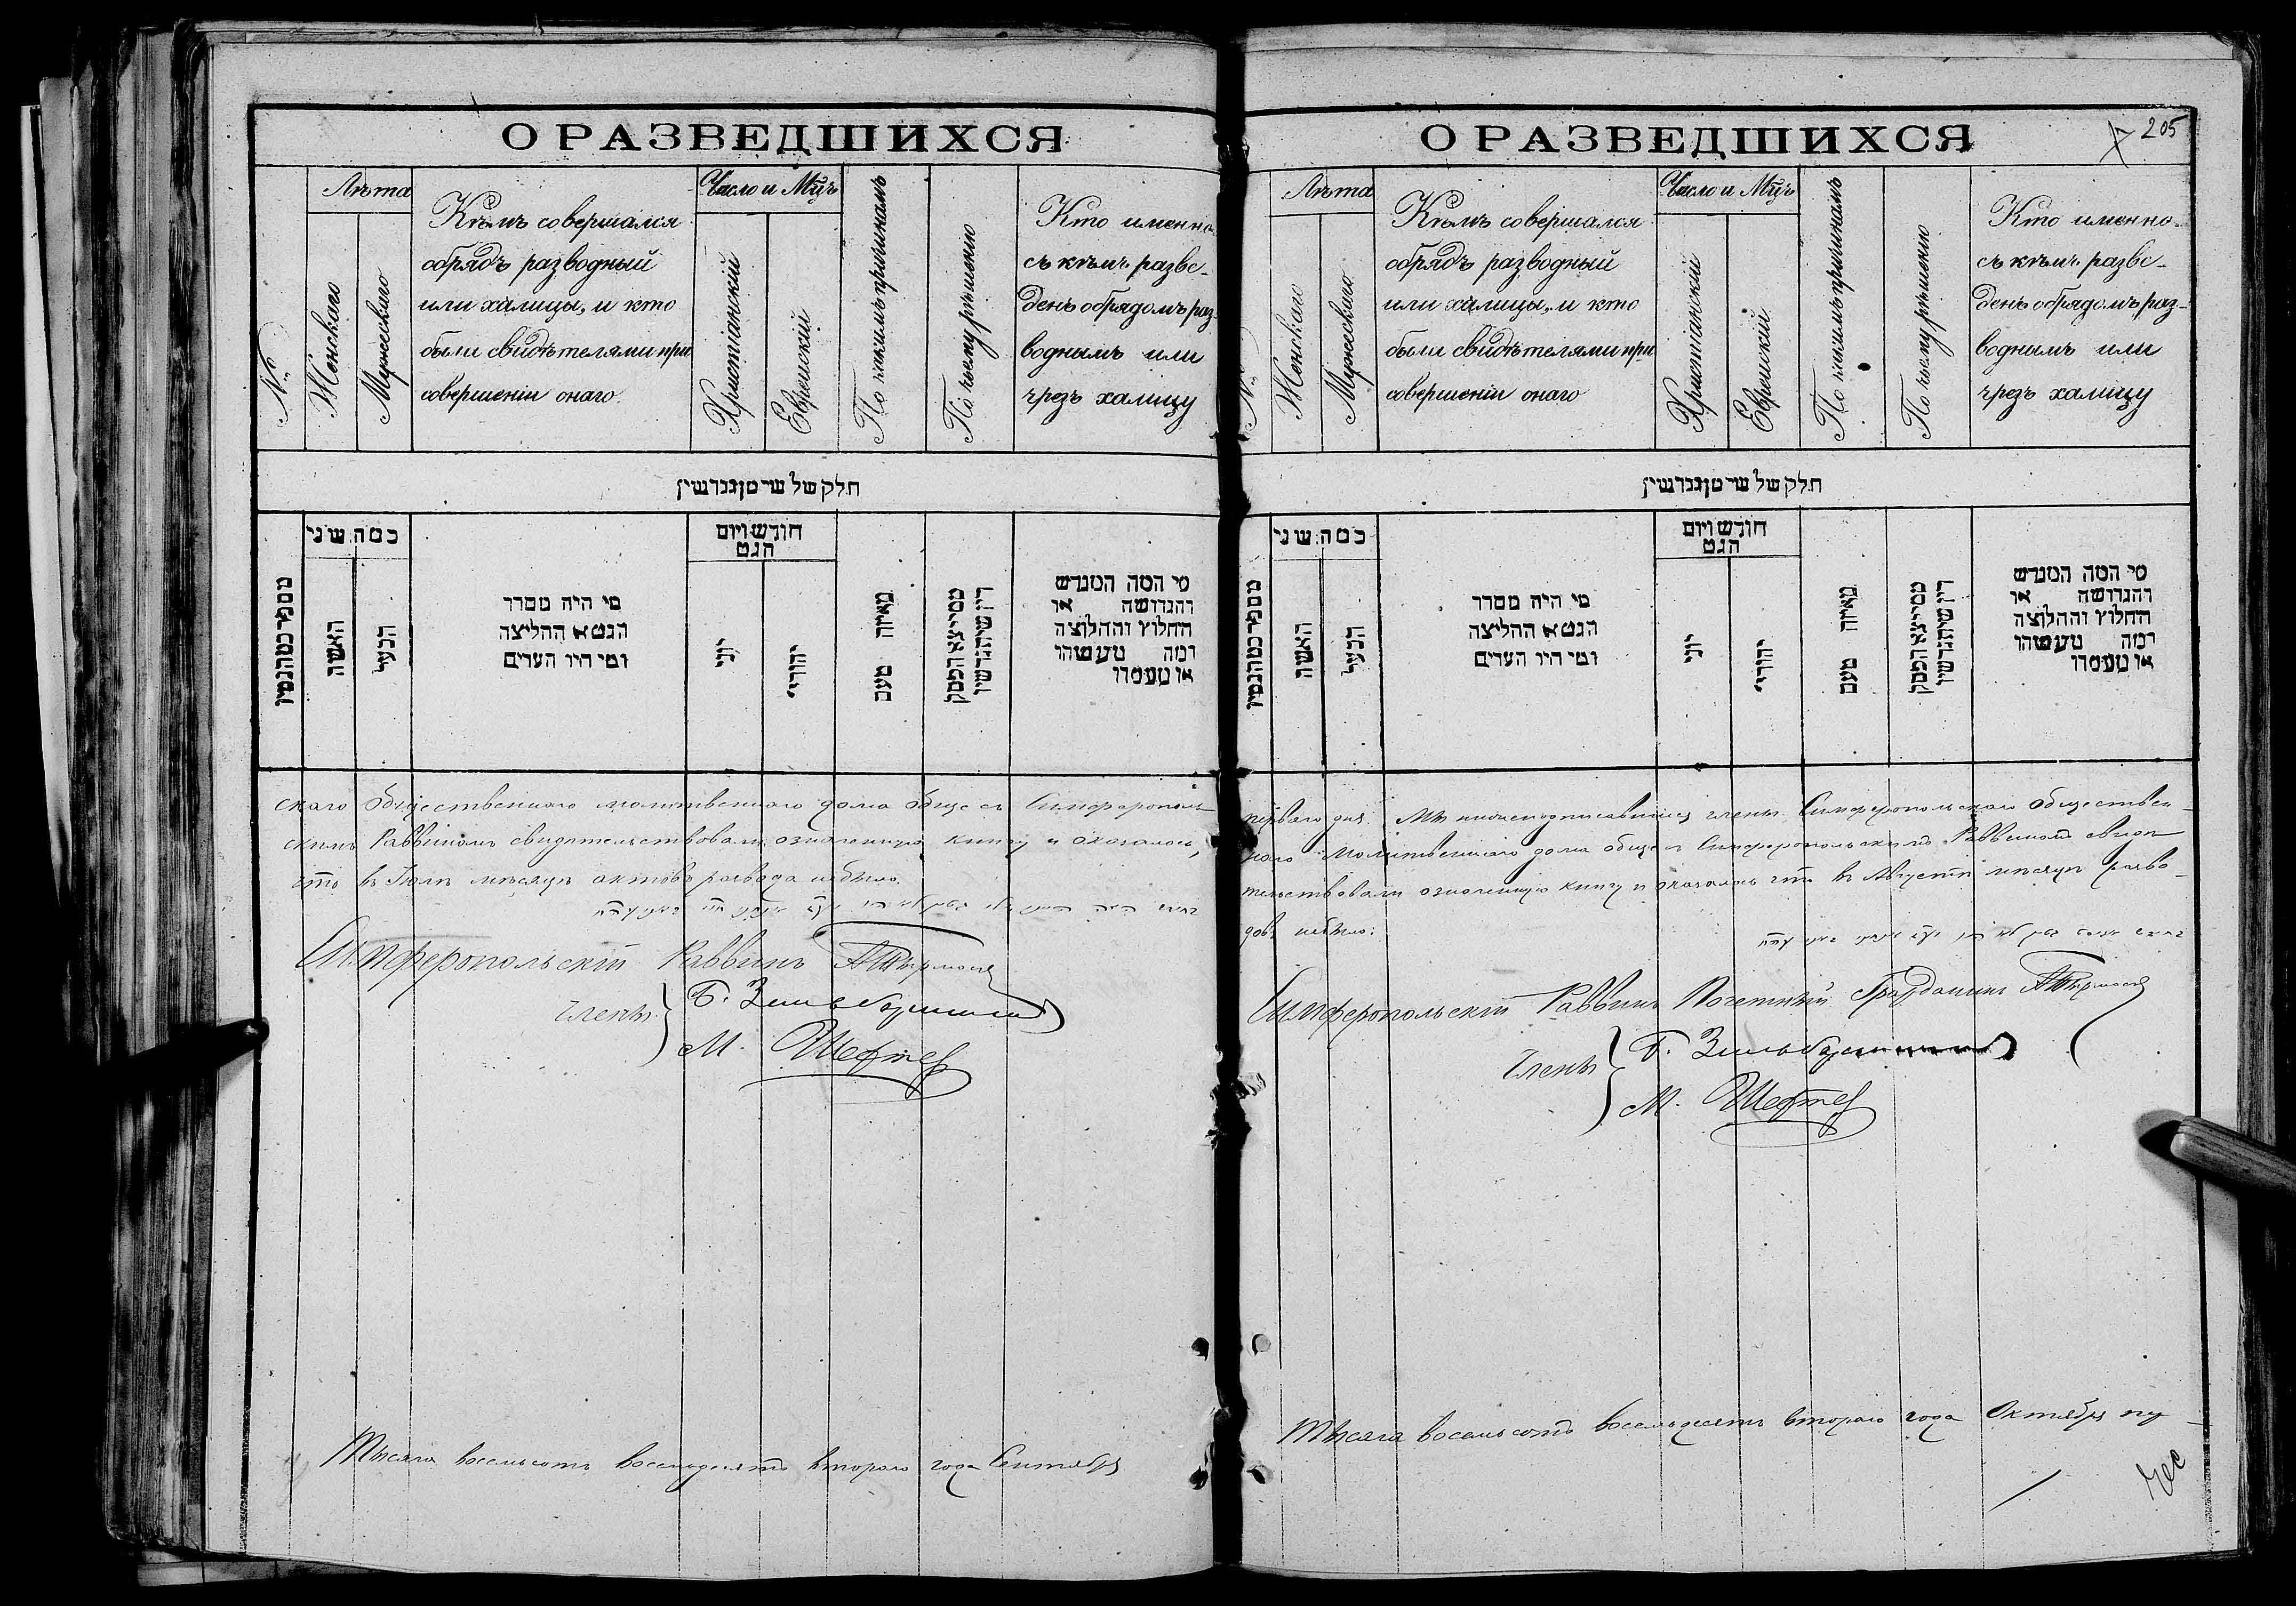 О РАЗВЕДШИХСЯ
№
Лѣта
Женскаго
Мужескаго
Кѣмъ совершался
обрядъ разводный
или халицы, и кто
были свидѣтелями при
совершеніи онаго.
Число и Мѣцъ
Христіанскій
Еврейскій
По какимъ причинамъ
По чьему рѣшенію
Кто именно
съ кѣмъ разве-
денъ обрядомъ раз-
воднымъ или
чрезъ халицу
חלק שלישי מן גרושין
מספר כמה גטין
כמה שני
האשה
הבעל
מי היה מסדר
הגט או החליצה
ומי היו העדים
חודש ויום
הגט
יוני
יהודי
מאיזה טעם
דין שיתגרשו
מי המה המגרש
והגרושה או
החלוץ והחלוצה
ומה מעשהו
או מעמדו
скаго общественнаго молитвеннаго дома обще съ Симферополь-
скимъ Раввиномъ свидѣтельствовали означенную книгу и оказалось,
что въ Іюлѣ мѣсяцѣ актовъ развода небыло.
Симферопольскій Раввинъ
Члены
М. Шефтел
Тысяча восемьсотъ восемьдесятъ втораго года Сентября
О РАЗВЕДШИХСЯ
205
№
Лѣта
Женскаго
Мужескаго
Кѣмъ совершался
обрядъ разводный
или халицы, и кто
были свидѣтелями при
совершеніи онаго
Число и Мѣцъ
Христіанскій
Еврейскій
По какимъ причинамъ
По чьему рѣшенію
Кто именно
съ кѣмъ разве-
денъ обрядомъ раз-
воднымъ или
чрезъ халицу
חלק שלישי מן גרושין
מספר כמה גטין
כמה שני
האשה
הבעל
מי היה מסדר
הגט או החליצה
ומי היו העדים
חודש ויום
הגט
יוני
יהודי
מאיזה טעם
דין שיתגרשו
מי המה המגרש
והגרושה או
החלוץ והחלוצה
ומה מעשהו
או מעמדו
перваго дня. Мы нижеподписавшіеся члены Симферопольскаго Обществен-
наго Молитвеннаго дома обще съ Симферопольскимъ Раввиномъ свидѣ-
тельствовали означенную книгу и оказалось что въ Августѣ мѣсяцѣ разво-
довъ небыло:
Симферопольскій Раввинъ Почетный Гражданинъ
Члены
М. Шефтел
Тысяча восемьсотъ восемьдесятъ втораго года Октября пер-